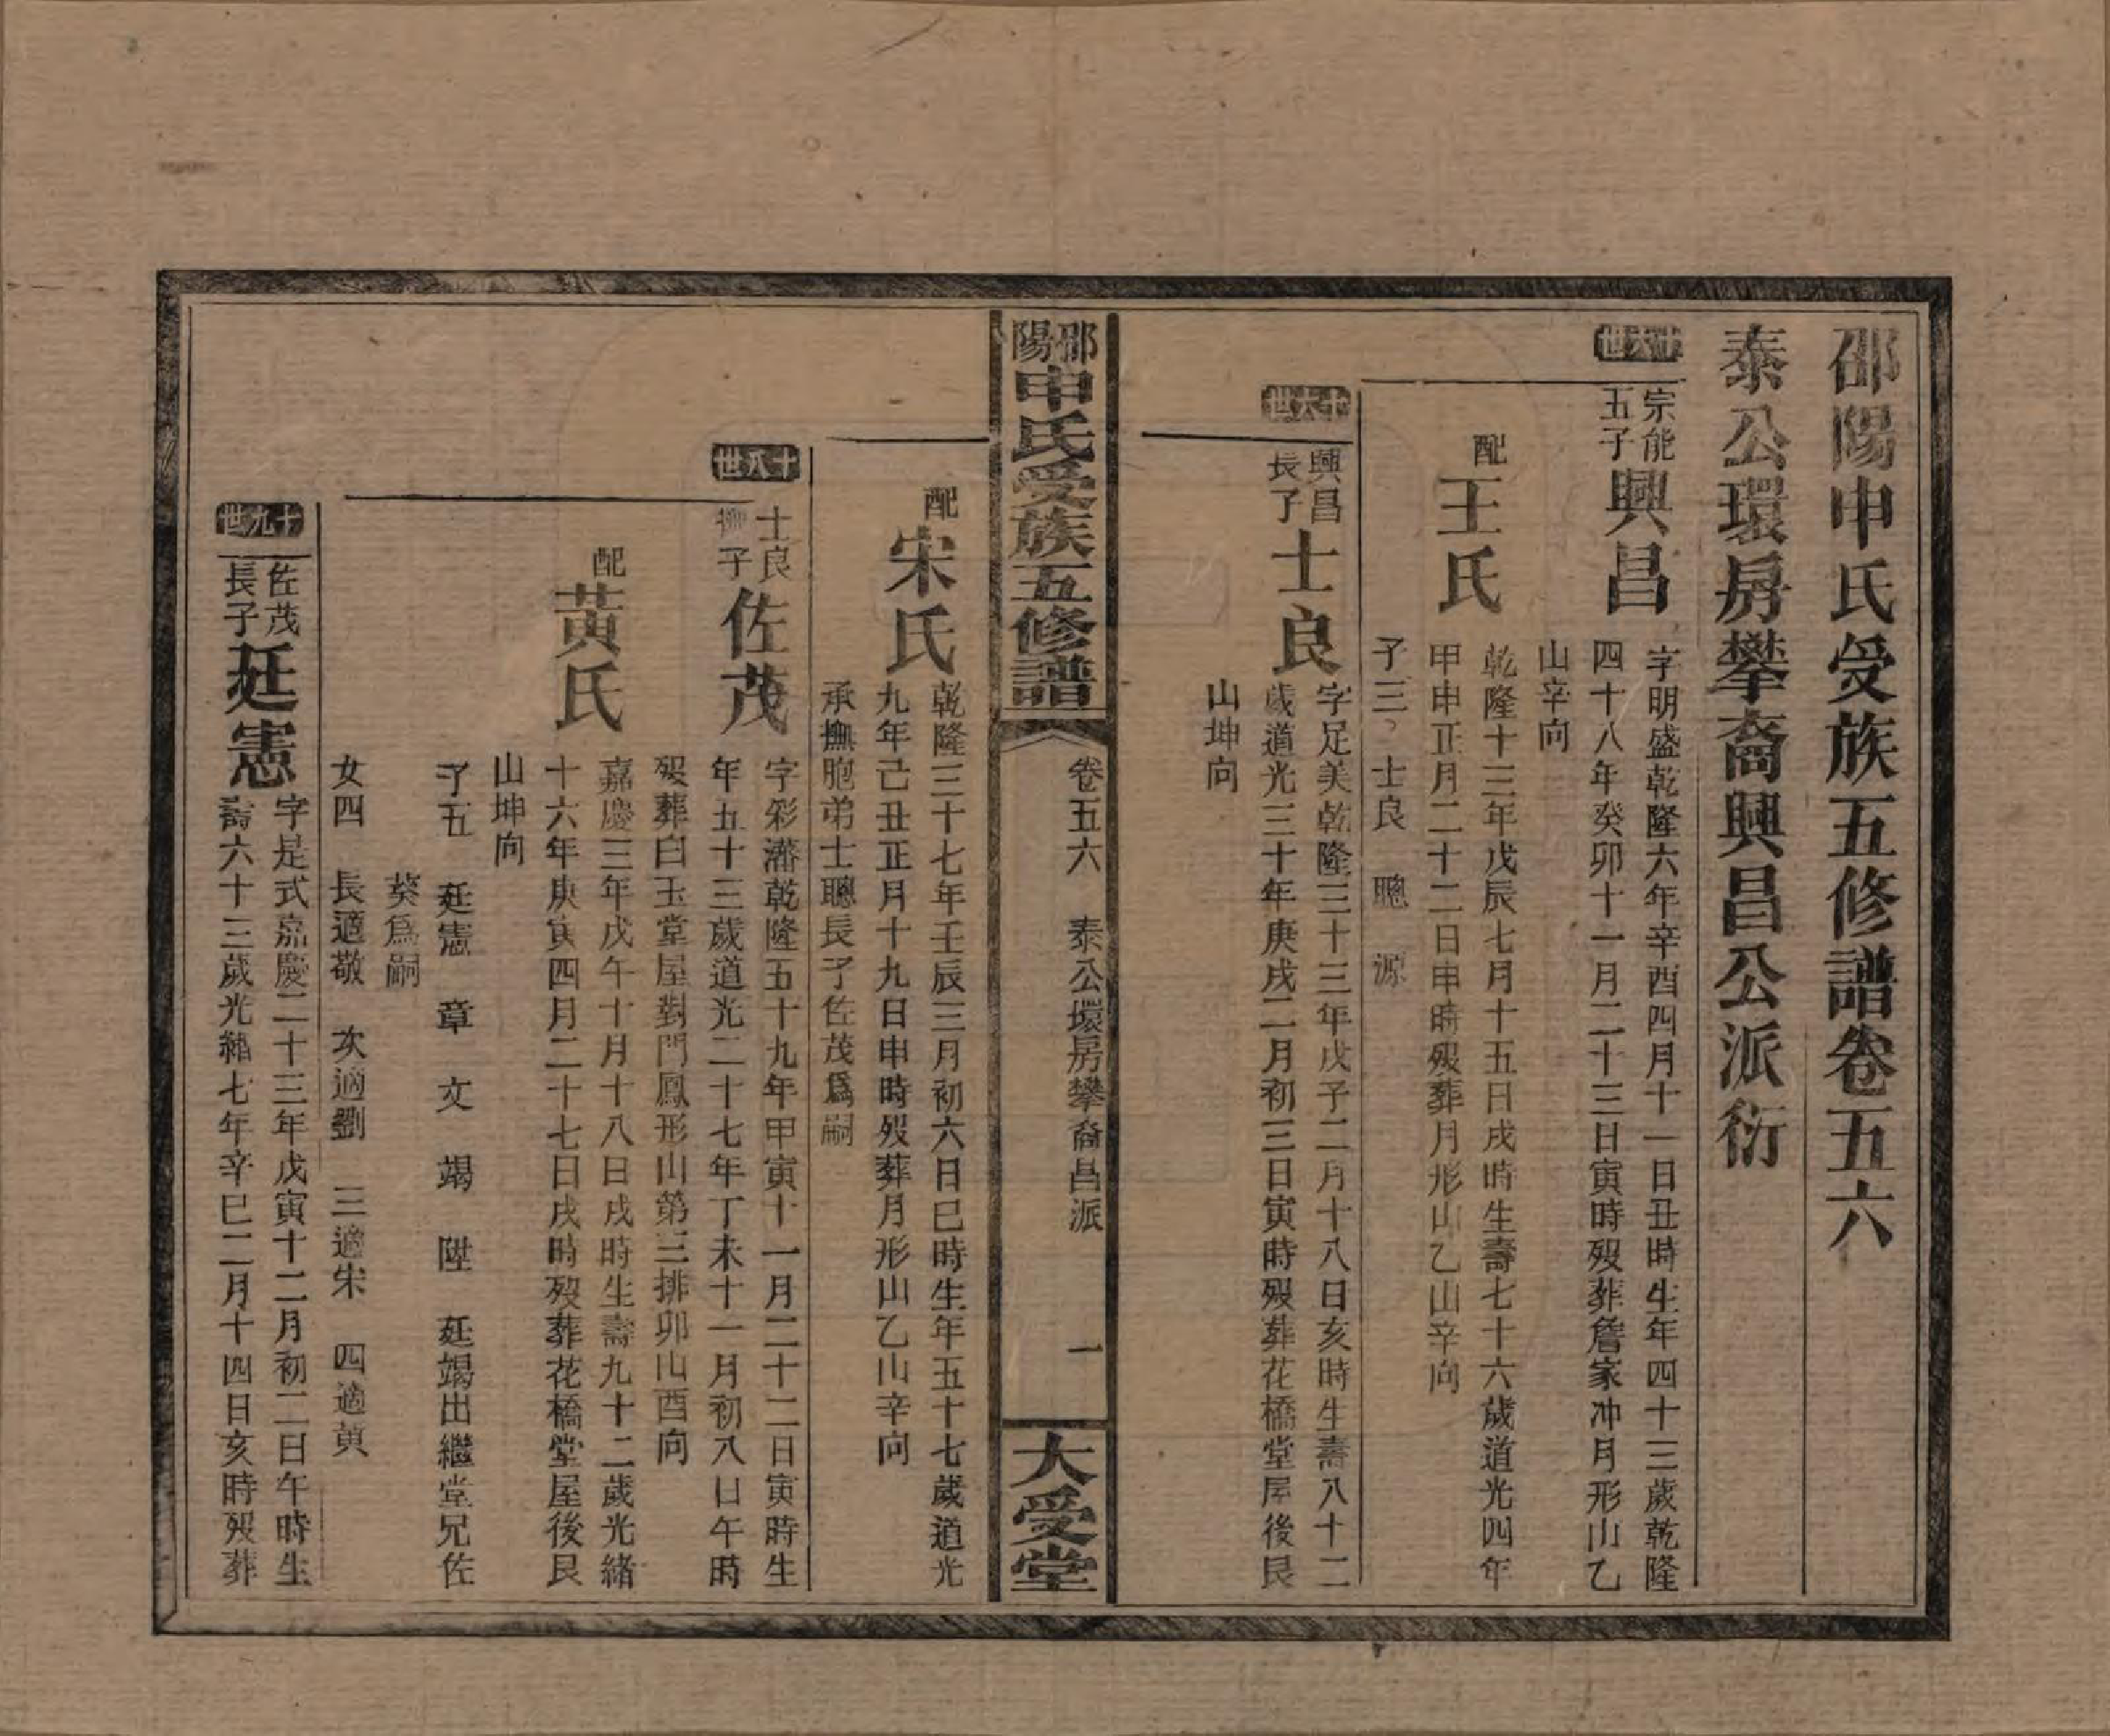 邵陽申氏受族五修譜卷五六
泰公環房攀裔興昌公派衍
十六世
宗能五子
興昌
字明盛乾隆六年辛酉四月十一日丑時生年四十三歲乾隆
四十八年癸卯十一月二十三日寅時歿葬詹家冲月形山乙
山辛向
配
王氏
乾隆十三年戊辰七月十五日戌時生壽七十六歲道光四年
甲申正月二十二日申時歿葬月形山乙山辛向
子三 士良 聰 源
十七世
興昌長子
士良
字足美乾隆三十三年戊子二月十八日亥時生壽八十二
歲道光三十年庚戌二月初三日寅時歿葬花橋堂屋後艮
山坤向
邵陽申氏受族五修譜
卷五六 泰公環房攀裔昌派 一
大受堂
配
宋氏
乾隆三十七年壬辰三月初六日巳時生年五十七歲道光
九年己丑正月十九日申時歿葬月形山乙山辛向
承撫胞弟士聰長子佐茂為嗣
十八世
士良撫子
佐茂
字彩藩乾隆五十九年甲寅十一月二十二日寅時生
年五十三歲道光二十七年丁未十一月初八日午時
歿葬白玉堂屋對門鳳形山第三排卯山酉向
配
黃氏
嘉慶三年戊午十月十八日戌時生壽九十二歲光緒
十六年庚寅四月二十七日戌時歿葬花橋堂屋後艮
山坤向
子五 廷憲 章 文 竭 陞 廷竭出繼堂兄佐
葵爲嗣
女四 長適敬 次適劉 三適宋 四適黃
十九世
佐茂長子
廷憲
字是式嘉慶二十三年戊寅十二月初二日午時生
壽六十三歲光緒七年辛巳二月十四日亥時歿葬